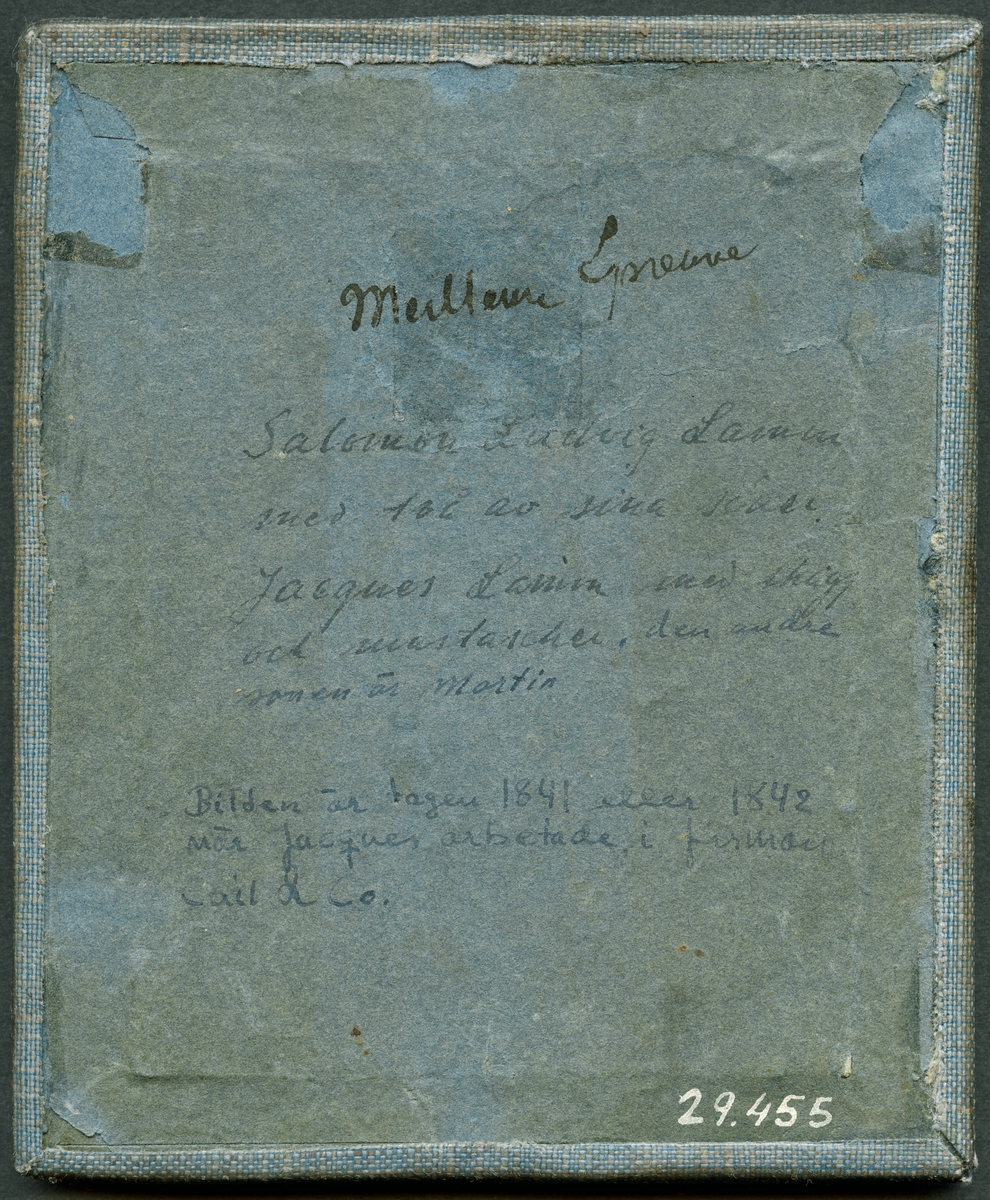 Meilleure Epreuve
Salomon Ludvig Lamm
med två av sina söner.
Jacques Lamm med skägg
och mustascher. den andre
sonen är Martin
Bilden är tagen 1841 eller 1842
när Jacques arbetade i firman
Cail & Co.
29.455